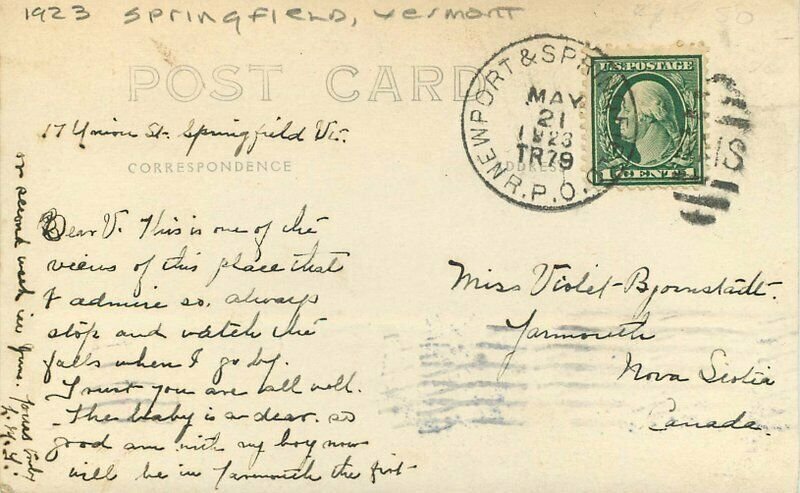 1923 SPRINGFIELD, VERMONT
POST CARD
17 Union St. Springfield Vt.
CORRESPONDENCE
ADDRESS
NEWPORT & SPRINGFIELD R.P.O.
MAY
21
1923
TR79
U.S. POSTAGE
1 CENT 1
Dear V. This is one of the
views of this place that
I admire so. always
stop and watch the
falls when I go by.
Trust you are all well.
The baby is a dear. so
good am with my boy now
will be in Yarmouth the first
or second week in June. yours truly
Miss Violet Bjornstadt.
Yarmouth
Nova Scotia
Canada.